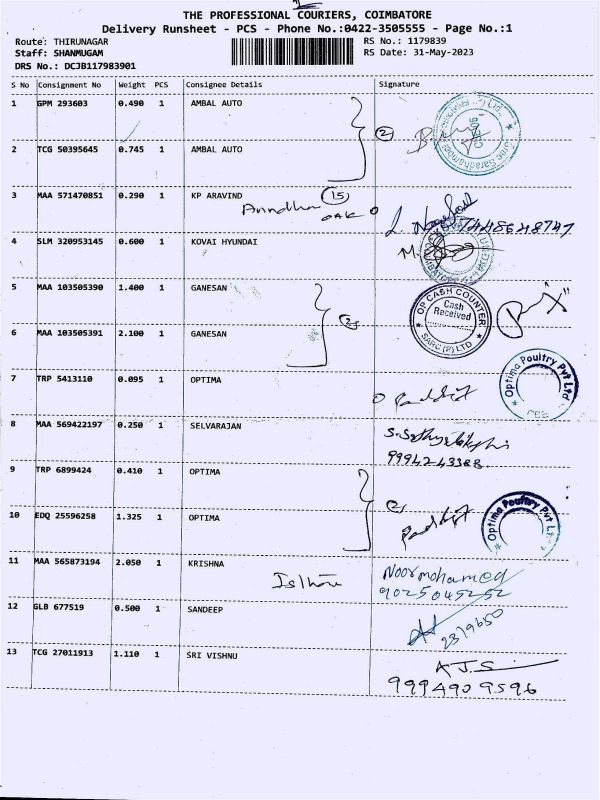 THE PROFESSIONAL COURIERS, COIMBATORE
Delivery Runsheet - PCS - Phone No.:0422-3505555 - Page No.:1
Route: THIRUNAGAR RS No.: 1179839
Staff: SHANMUGAM RS Date: 31-May-2023
DRS No.: DCJB117983901
S No Consignment No Weight PCS Consignee Details Signature
1 GPM 293603 0.490 1 AMBAL AUTO
2
2 TCG 50395645 0.745 1 AMBAL AUTO
3 MAA 571470851 0.290 1 KP ARAVIND
15
7448628747
4 SLM 320953145 0.600 1 KOVAI HYUNDAI
5 MAA 103505390 1.400 1 GANESAN
OP CASH COUNTER
Cash
Received
SABC (P) LTD
6 MAA 103505391 2.100 1 GANESAN
7 TRP 5413110 0.095 1 OPTIMA
Optima Poultry Pvt Ltd
8 MAA 569422197 0.250 1 SELVARAJAN
9994243388
9 TRP 6899424 0.410 1 OPTIMA
10 EDQ 25596258 1.325 1 OPTIMA
Optima Poultry Pvt Ltd
11 MAA 565873194 2.050 1 KRISHNA
Noormohamed
9025045252
12 GLB 677519 0.500 1 SANDEEP
2379650
13 TCG 27011913 1.110 1 SRI VISHNU
9994909596